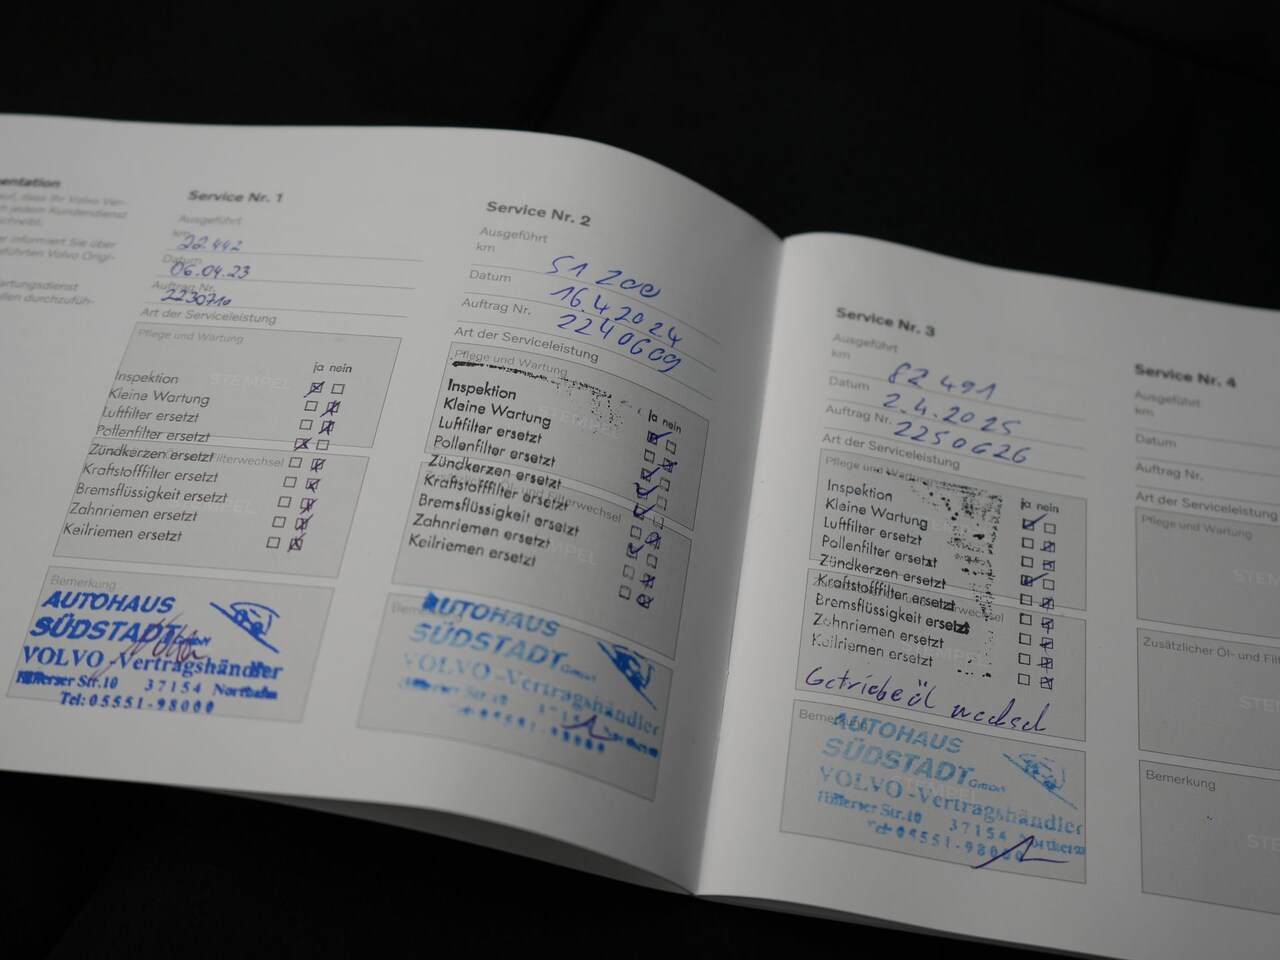 entation
Service Nr. 1
Ausgeführt
km 22.442
Datum
06.04.23
Auftrag Nr.
2230710
Art der Serviceleistung
Pflege und Wartung
STEMPEL
ja nein
Inspektion
Kleine Wartung
Luftfilter ersetzt
Pollenfilter ersetzt
Zündkerzen ersetzt
Kraftstofffilter ersetzt
Bremsflüssigkeit ersetzt
Zahnriemen ersetzt
Keilriemen ersetzt
Bemerkung
AUTOHAUS
SÜDSTADT GmbH
VOLVO-Vertragshändler
Hillerser Str.10 37154 Northeim
Tel: 05551-98000
Service Nr. 2
Ausgeführt
km 51 200
Datum 16.4.2024
Auftrag Nr. 2240609
Art der Serviceleistung
Pflege und Wartung
STEMPEL
ja nein
Inspektion
Kleine Wartung
Luftfilter ersetzt
Pollenfilter ersetzt
Zündkerzen ersetzt
Kraftstofffilter ersetzt
Bremsflüssigkeit ersetzt
Zahnriemen ersetzt
Keilriemen ersetzt
STEMPEL
AUTOHAUS
SÜDSTADT GmbH
VOLVO-Vertragshändler
Service Nr. 3
Ausgeführt
km 82 491
Datum 2.4.2025
Auftrag Nr. 2250626
Art der Serviceleistung
Pflege und Wartung
ja nein
Inspektion
Kleine Wartung
Luftfilter ersetzt
Pollenfilter ersetzt
Zündkerzen ersetzt
Kraftstofffilter ersetzt
Bremsflüssigkeit ersetzt
Zahnriemen ersetzt
Keilriemen ersetzt
Getriebeöl wechsel
Bemerkung
AUTOHAUS
SÜDSTADT GmbH
VOLVO-Vertragshändler
Hillerser Str.10 37154 Northeim
05551-98000
Service Nr. 4
Ausgeführt
km
Datum
Auftrag Nr.
Art der Serviceleistung
Pflege und Wartung
STEMPEL
Zusätzlicher Öl- und Filt
Bemerkung